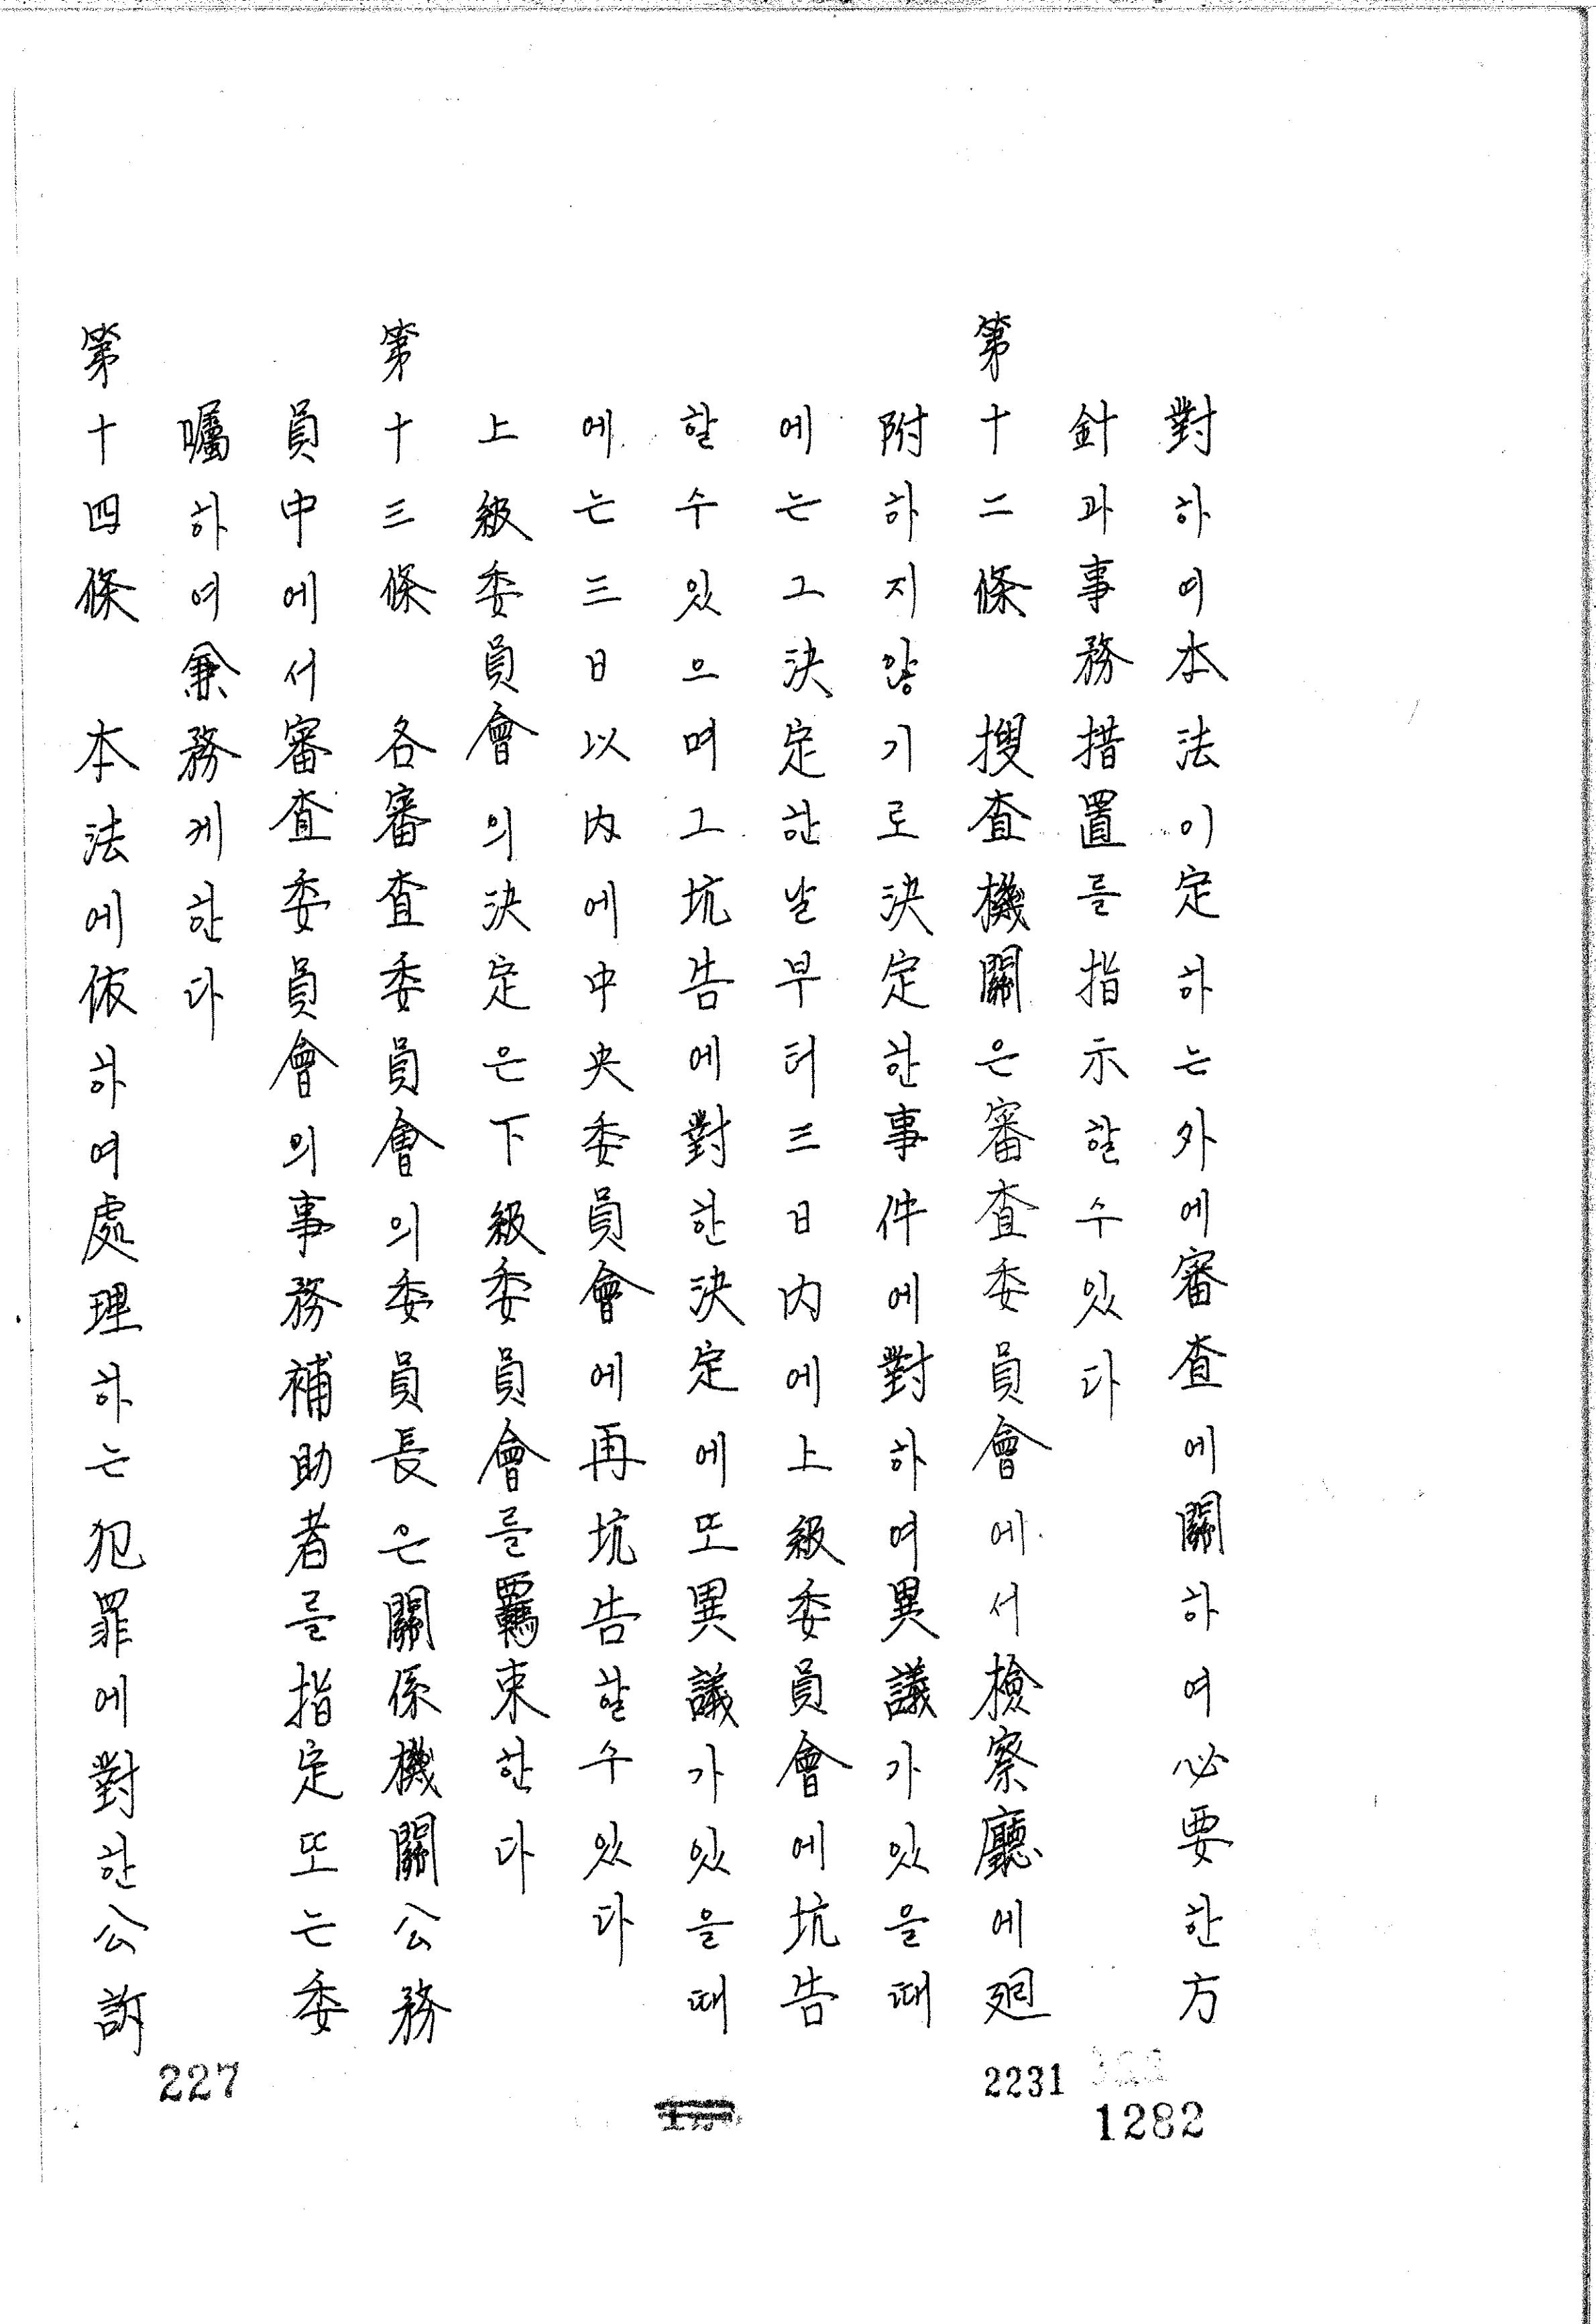 對하여本法이定하는外에審査에關하여必要한方
針과事務措置를指示할수있다
第十二條 搜査機關은審査委員會에서檢察廳에廻
附하지양기로決定한事件에對하여異議가있을때
에는그決定한날부터三日內에上級委員會에坑告
할수있으며그坑告에對한決定에또異議가있을때
에는三日以內에中央委員會에再坑告할수있다
上級委員會의決定은下級委員會를羈束한다
第十三條 各審査委員會의委員長은關係機關公務
員中에서審査委員會의事務補助者를指定또는委
囑하여兼務케한다
第十四條 本法에依하여處理하는犯罪에對한公訴
227
2231
1282